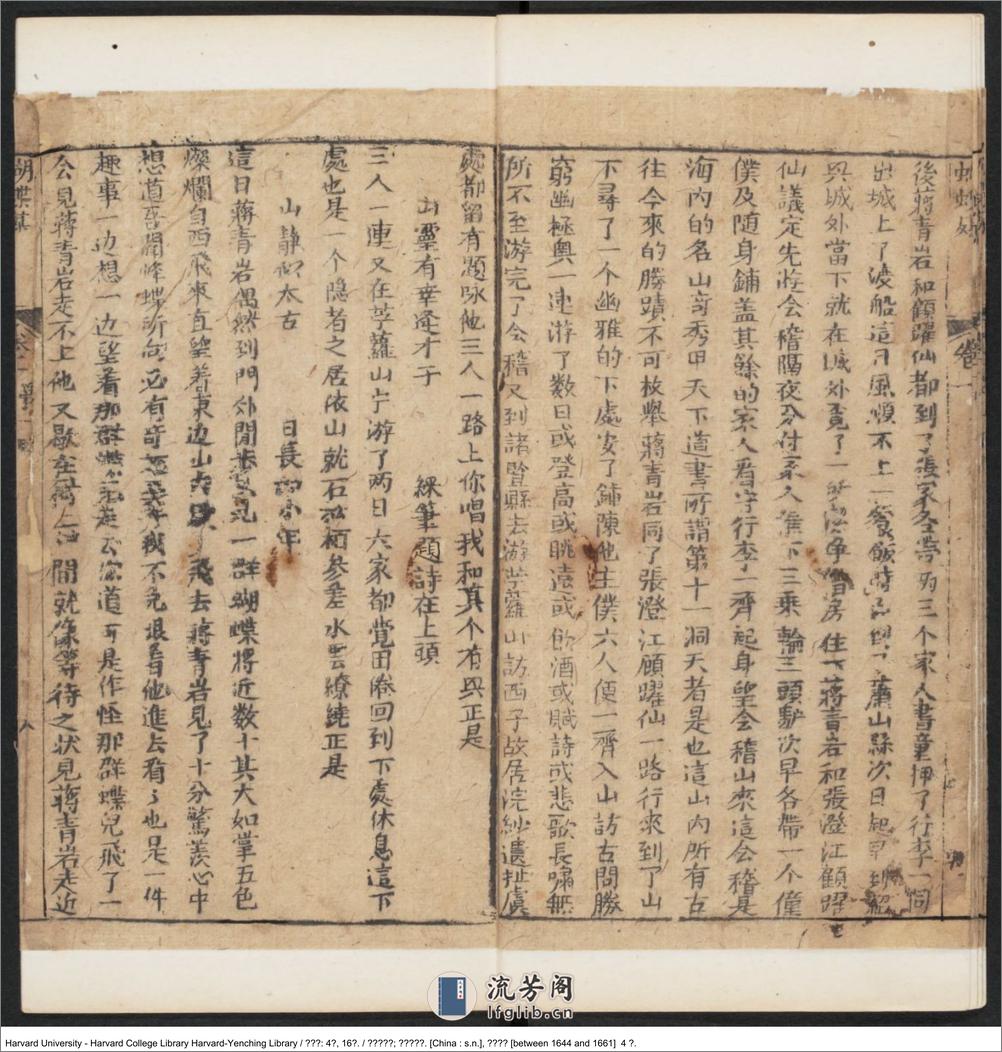 後蔣青岩和顧躍仙都到了張家各帶两三个家人書童押了行李一同
出城上了渡船這日風順不上一餐飯時蕭山縣次日起早到紹
興城外當下就在城外覓了一所潔淨僧房住下蔣青岩和張澄江顧躍
仙議定先遊會稽隔夜分付家人僱下三乘輪三頭驢次早各帶一个僮
僕及随身鋪盖其餘的家人看守行李一齊起身望会稽山來這会稽是
海內的名山奇秀甲天下道書所謂第十一洞天者是也這山內所有古
往今來的勝蹟不可枚舉蔣青岩同了張澄江顧躍仙一路行來到了山
下尋了一个幽雅的下處安了鋪陳他主僕六人便一齊入山訪古問勝
窮幽極奧一連游了数日或登高或眺遠或飲酒或賦詩或悲歌長嘯無
所不至游完了会稽又到諸暨縣去游苧蘿山訪西子故居浣紗遺址處
處都留有題咏他三人一路上你唱我和真个有興正是
山靈有幸逢才子 綵筆題詩在上頭
三人一連又在苧蘿山中游了两日大家都覺困倦回到下處休息這下
處也是一个隐者之居依山就石松栢参差水雲繚繞正是
山静似太古 日長如小年
這日蔣青岩偶然到門外閒步見一群蝴蝶將近数十其大如掌五色
燦爛自西飛來直望着東边山去蔣青岩見了十分驚羨心中
想道吾聞蜂蝶所向必有奇我不免跟着他進去看々也是一件
趣事一边想一边望着那群走去道可是作怪那群蝶兒飛了一
会見蔣青岩走不上他又歇在間就像等待之狀見蔣青岩走近
蝴蝶媒
卷一
八
流芳阁
lfglib.cn
Harvard University - Harvard College Library Harvard-Yenching Library / ???: 4?, 16?. / ?????; ?????. [China : s.n.], ???? [between 1644 and 1661] 4 ?.